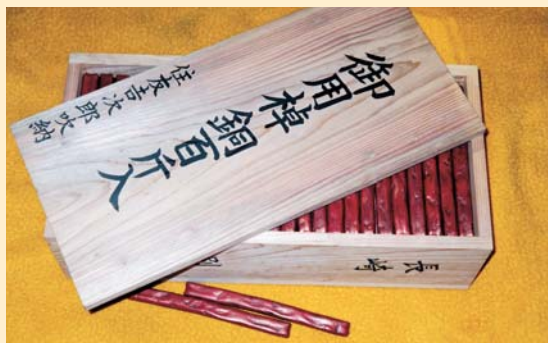 御用棹銅百斤入
住友吉次郎吹納
長崎